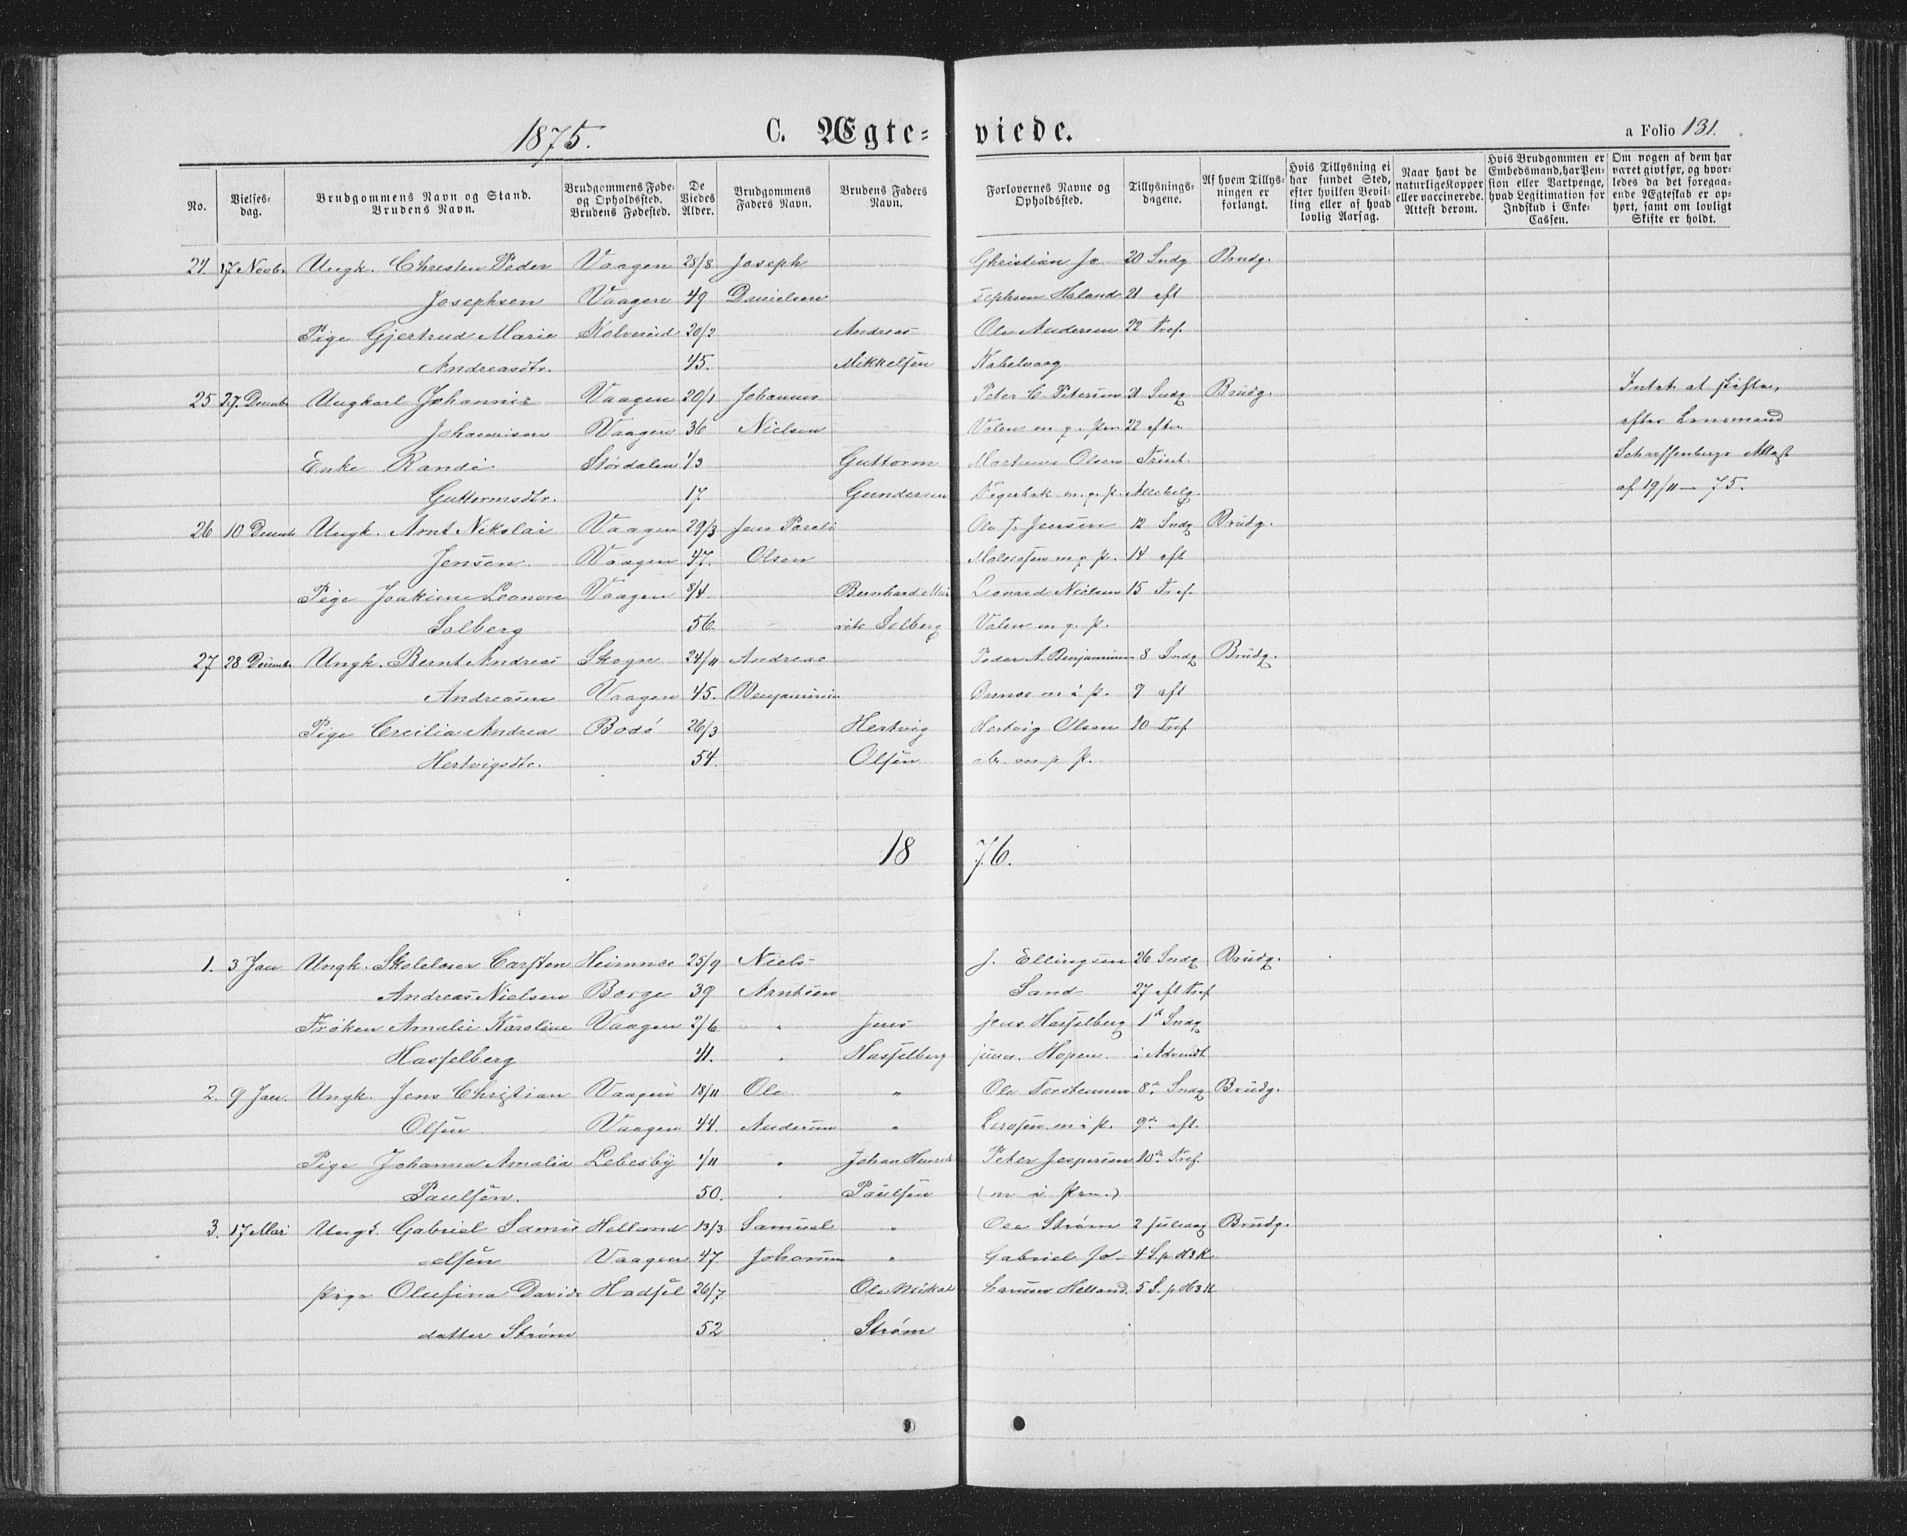 1875. C. Ægte= viede. a Folio 131.
No. Vielses-dag. Brudgommens Navn og Stand. Brudens Navn. Brudgommens Føde- og Opholdssted. Brudens Fødested. De Viedes Alder. Brudgommens Faders Navn. Brudens Faders Navn. Forlovernes Navne og Opholdssted. Tillysnings-dagene. Af hvem Tillysningen er forlangt. Hvis Tillysning ei har fundet Sted, efter hvilken Bevilling eller af hvad lovlig Aarsag. Naar havt de naturlige Kopper eller vaccinerede. Attest derom. Hvis Brudgommen er Embedsmand, har Pension eller Vartpenge, hvad Legitimation for Indskud i Enke-Cassen. Om nogen af dem har varet givtfør, og hvorledes da det foregaaende Ægteskab er ophørt, samt om lovligt Skifte er holdt.
24. 17 Novbr Ungk. Christen Peder Vaagen 28/8 Joseph Christian Jo- 20 Sndg Brudg.
Josephsen Vaagen 49 Danielsen sephsen Höland 21 eft
Pige Gjertrud Marie Kolvereid 20/2 Andreas Ole Andersen 22 Tref.
Andreasdtr. 45. Mikkelsen Kabelvaag
25 27. Decembr Ungkarl Johannes Vaagen 20/1 Johannes Peter C. Petersen 21 Sndg Brudg. Intet at skifte,
Johannesen Vaagen 36 Nielsen Volen m. q. prm 22 efter efter Lensmand
Enke Randi Stordalen 1/3 Guttorm Martinus Olsen Trinit. Scharffenbergs Attest
Guttormsdtr. 17. Gundersen m. q. p. Allehelg. af 19/11 - 75.
26 10 Decembr Ungk. Arnt Nikolai Vaagen 29/3 Jens Pareli Ole J. Jensen 12 Sndg Brudg.
Jensen. Vaagen 47. Olsen m q p. 14 eft
Pige Joakime Leonore Vaagen 8/4 Bernhard Leonard Nielsen 15 Tref.
Solberg 56. Solberg Volen m. q. p.
27 28 Decembr Ungk. Bernt Andreas Skogn 24/11 Andreas Peder A. Benjaminsen 8 Sndg Brudg.
Andreasen Vaagen 45. Benjaminsen m i p. 9 eft
Pige Cecilia Andrea Bodö 26/3 Hertvig Hertvig Olsen 10 Tref
Hertvigsdtr. 54. Olsen
18 76.
1. 3 Jan Ungk. Skolelærer Carsten Heimnæs 25/9 Niels J. Ellingsen 26 Sndg Brudg.
Andreas Nielsen Borge 39 Arntsen Sand 27 eft Tref
Frøken Amalie Karoline Vaagen 2/6 " Jens Jens Hasselberg 1st Sndg
Hasselberg 41. " Hasselberg junr. Hopen. i Advendt
2. 9 Jan. Ungk. Jens Christian Vaagen 18/11 Ole " Ole Torstensen 8de Sndg Brudg.
Olsen Vaagen 44. Andersen " m i p. 9de eft.
Pige Johanna Amalia Lebesby 1/11 " Johan Henrik Peter Jespersen 10de Tref.
Paulsen. 50. " Paulsen (m i prm.)
3. 17 Mai Ungk. Gabriel Samu- Helland 13/3 Samuel " Ole Strøm 2 Juledag Brudg.
elsen Vaagen 47 Johansen " Gabriel Jo- 4 S. p H3K
Pige Olufina Davids Hadsel 26/7 Ole Mikal hansen Helland. 5 S. p H3K
datter Strøm 52 Strøm